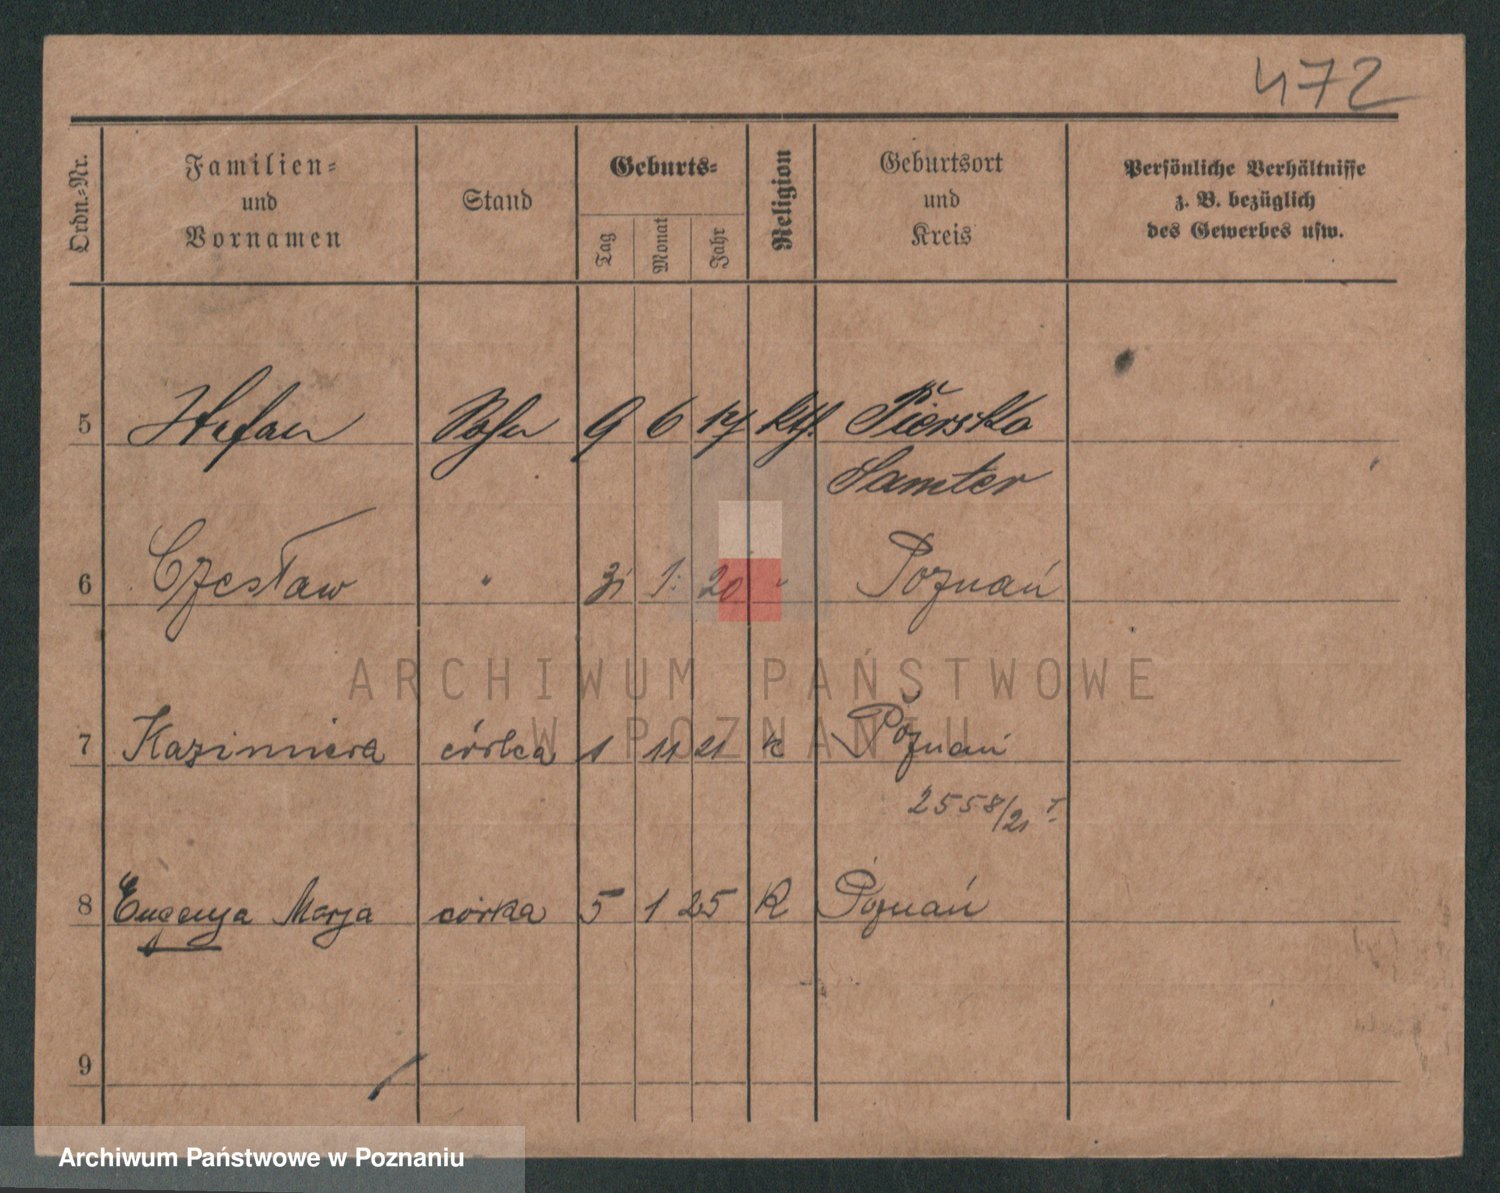 472
Ordn.-Nr.
Familien-
und
Vornamen
Stand
Geburts-
Tag
Monat
Jahr
Religion
Geburtsort
und
Kreis
Persönliche Verhältnisse
z. B. bezüglich
des Gewerbes usw.
5 Stefan Sohn 9 6 17 kth. Piersko
Samter
6 Czesław " 31 1. 20 " Poznań
7 Kazimiera córka 1 11 21 k Poznań
2558/21 T.
8 Eugenja Marja córka 5 1 25 K Poznań
9
ARCHIWUM PAŃSTWOWE
W POZNANIU
Archiwum Państwowe w Poznaniu